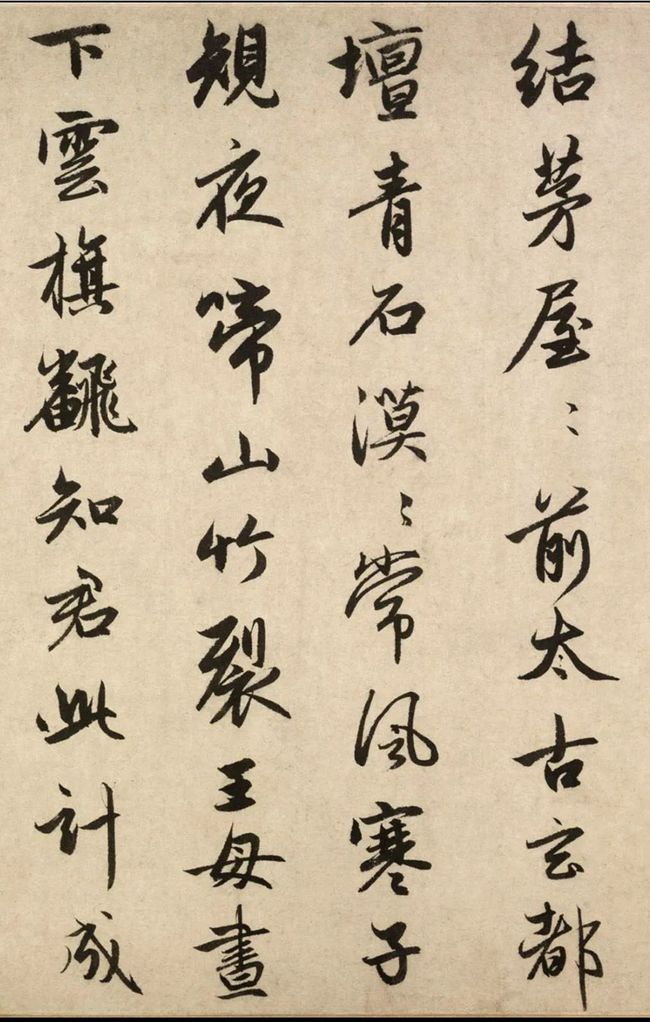 結茅屋〻前太古玄都
壇青石漠〻常風寒子
規夜啼山竹裂王母晝
下雲旗飜知君此計成